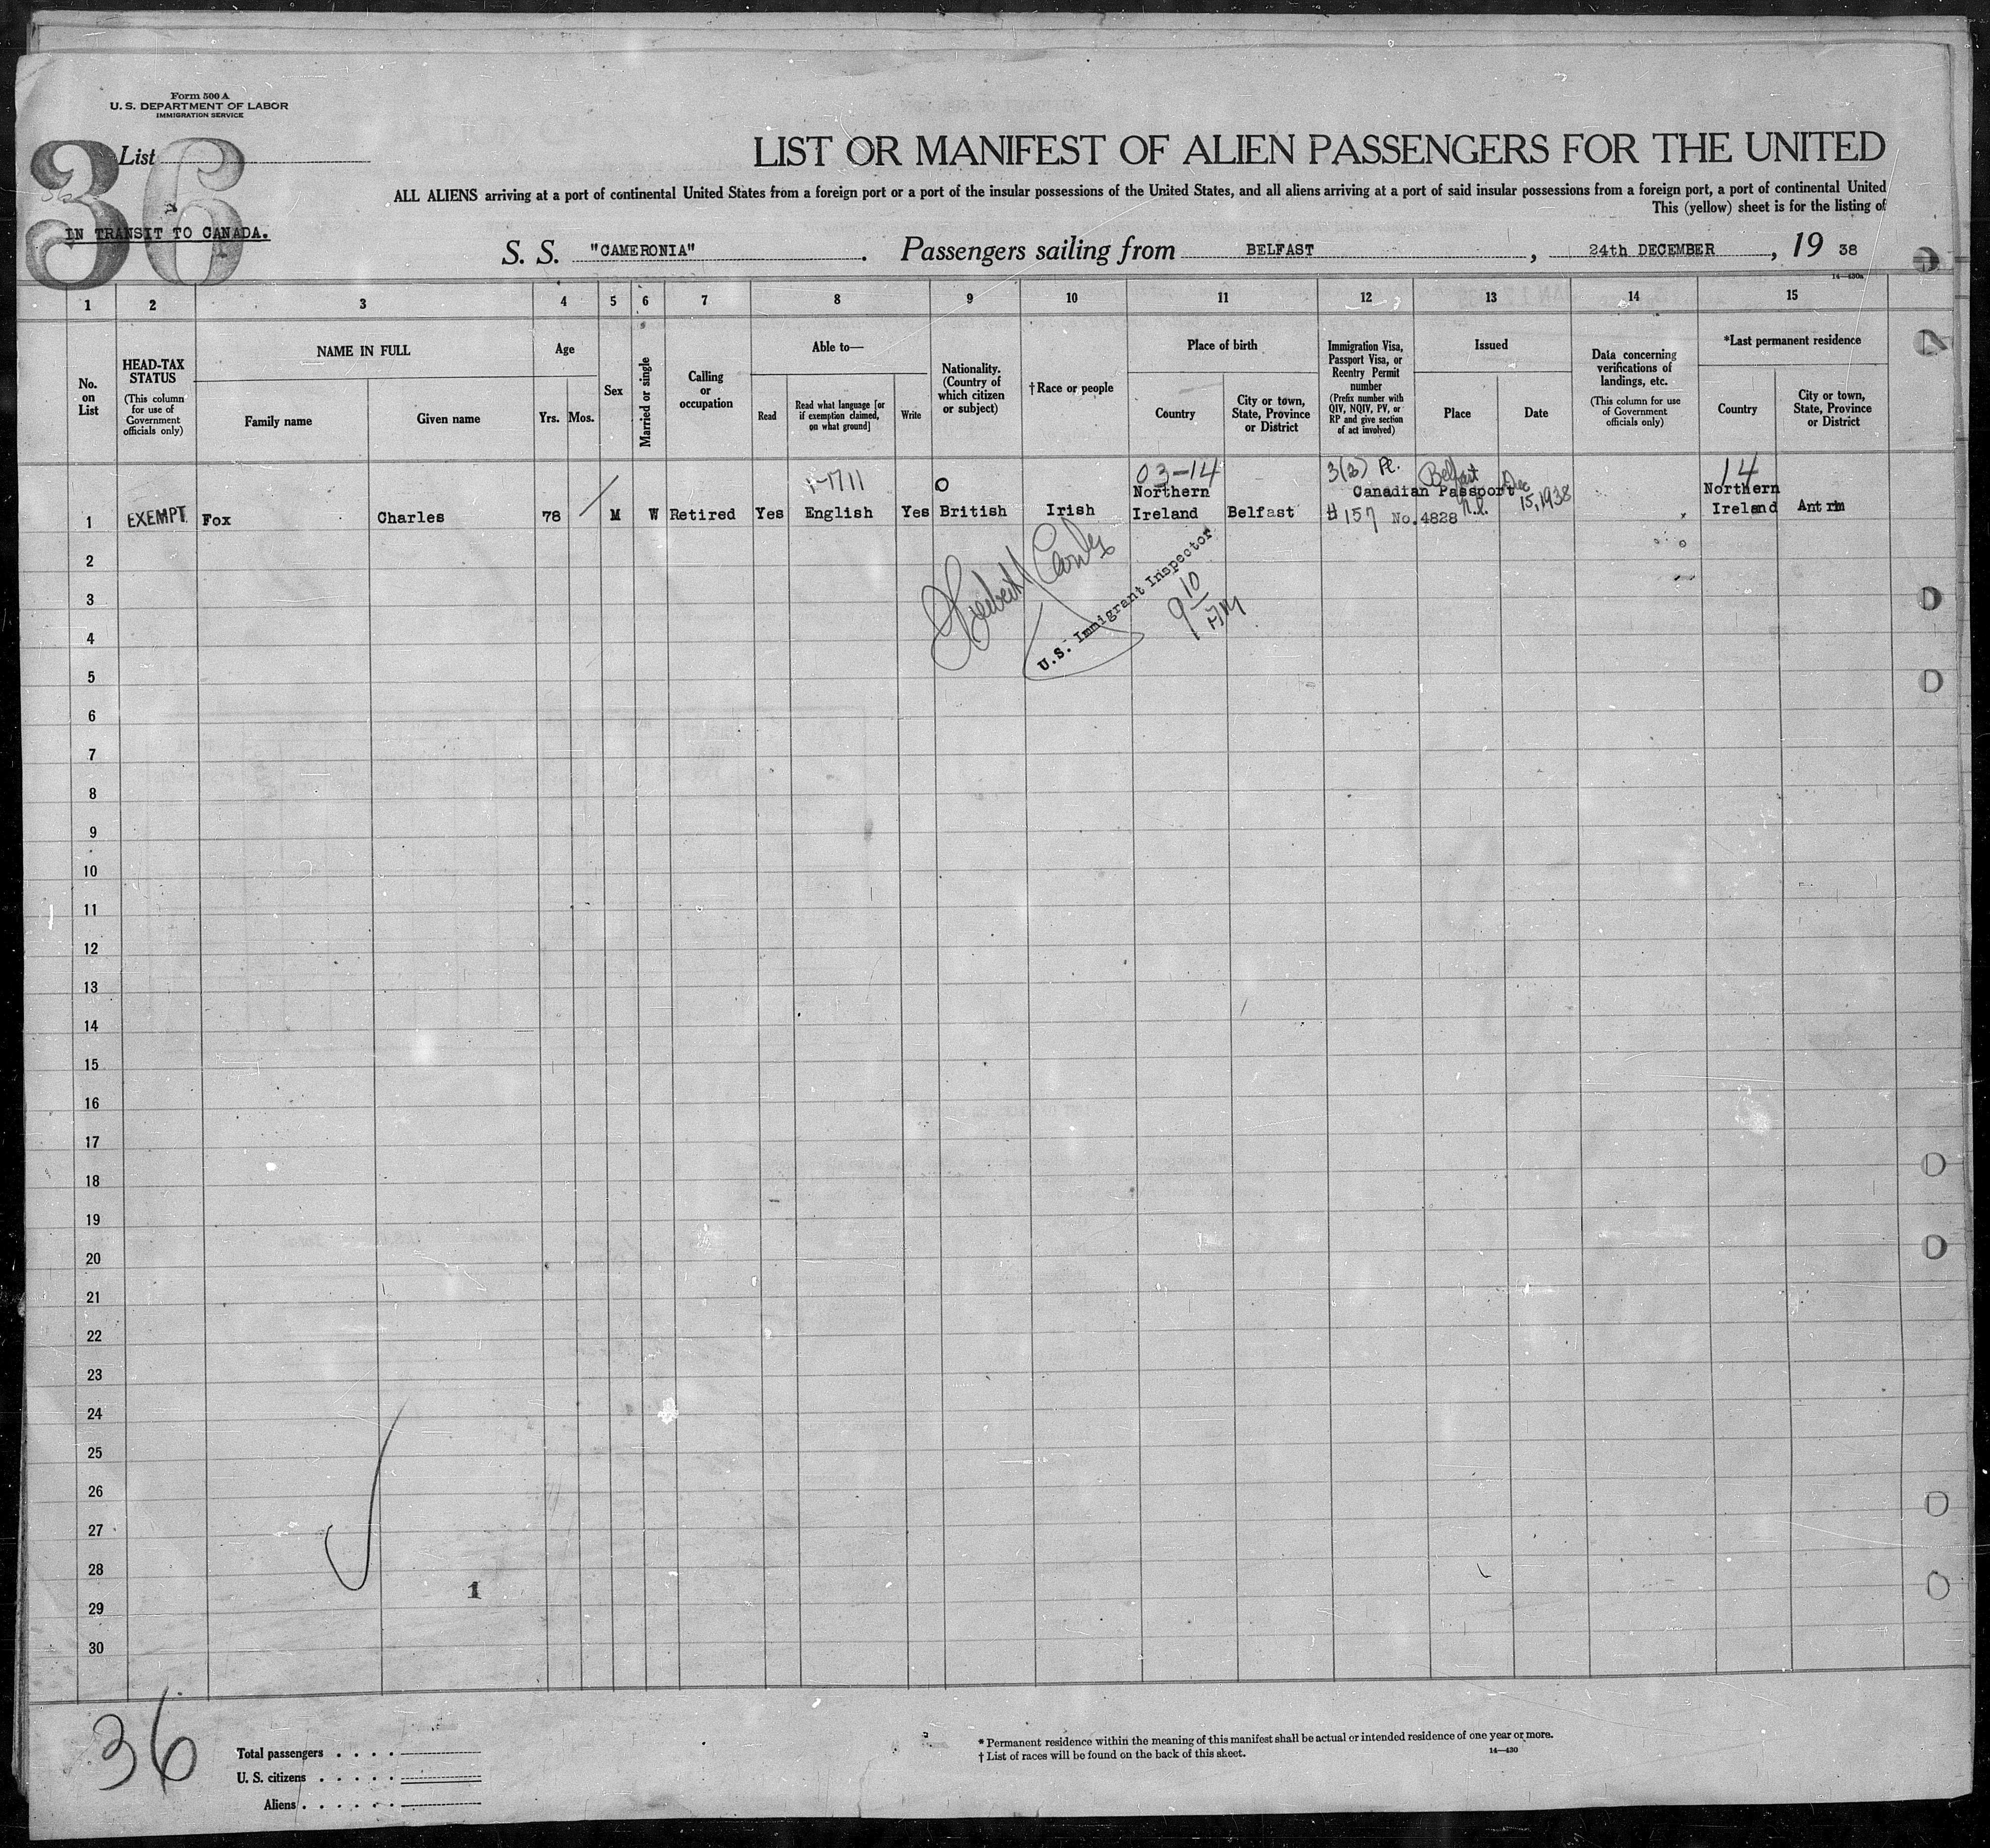 Form 500 A
U. S. DEPARTMENT OF LABOR
IMMIGRATION SERVICE
36
List
IN TRANSIT TO CANADA.
LIST OR MANIFEST OF ALIEN PASSENGERS FOR THE UNITED
ALL ALIENS arriving at a port of continental United States from a foreign port or a port of the insular possessions of the United States, and all aliens arriving at a port of said insular possessions from a foreign port, a port of continental United
This (yellow) sheet is for the listing of
S. S. "CAMERONIA". Passengers sailing from BELFAST, 24th DECEMBER, 19 38
14—430a
1 2 3 4 5 6 7 8 9 10 11 12 13 14 15
No. on List
HEAD-TAX STATUS
(This column for use of Government officials only)
NAME IN FULL
Family name
Given name
Age
Yrs. Mos.
Sex
Married or single
Calling or occupation
Able to—
Read
Read what language [or if exemption claimed, on what ground]
Write
Nationality. (Country of which citizen or subject)
†Race or people
Place of birth
Country
City or town, State, Province or District
Immigration Visa, Passport Visa, or Reentry Permit number
(Prefix number with QIV, NQIV, PV, or RP and give section of act involved)
Issued
Place
Date
Data concerning verifications of landings, etc.
(This column for use of Government officials only)
*Last permanent residence
Country
City or town, State, Province or District
03-14 3(3) Belfast Dec 14
Northern Canadian Passport 15, 1938 Northern
1 EXEMPT Fox Charles 78 M W Retired Yes English Yes British Irish Ireland Belfast #157 No. 4828 N.I. Ireland Antrim
U.S. Immigrant Inspector
9 10 AM
2
3
4
5
6
7
8
9
10
11
12
13
14
15
16
17
18
19
20
21
22
23
24
25
26
27
28
1
29
30
36
Total passengers
U. S. citizens
Aliens
* Permanent residence within the meaning of this manifest shall be actual or intended residence of one year or more.
† List of races will be found on the back of this sheet.
14—430